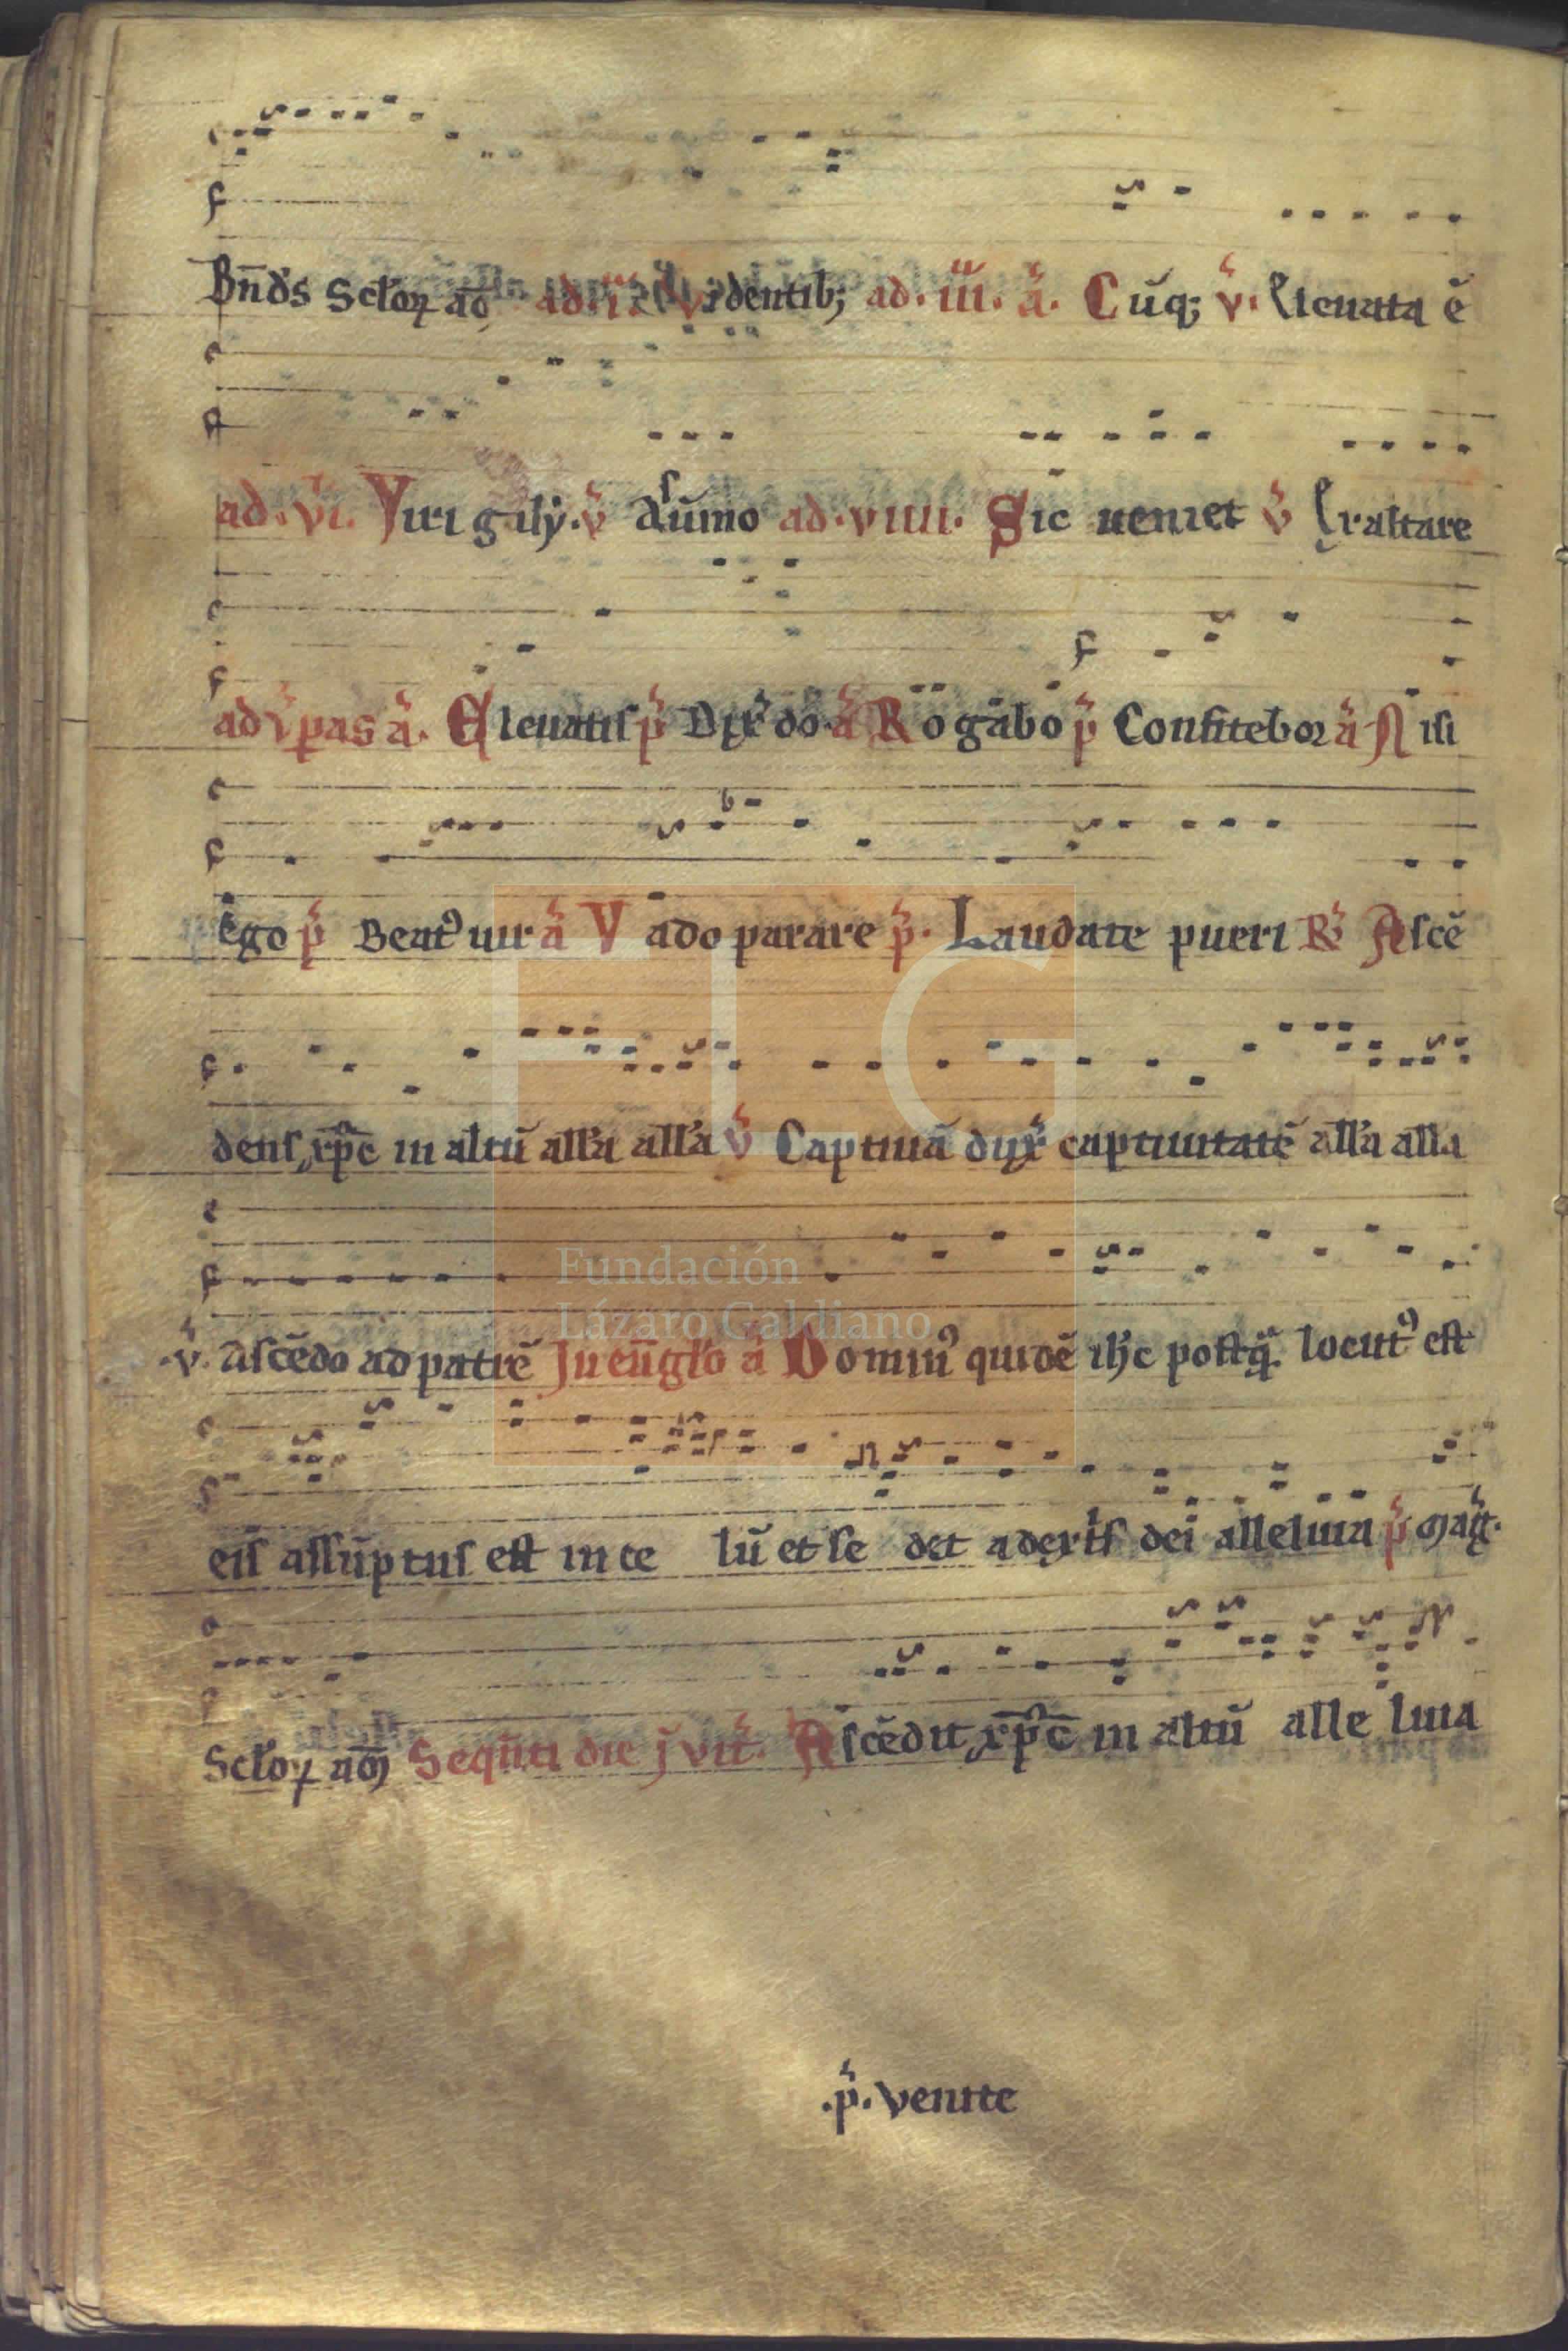 Bn̄dʼs Scłoꝝ am̄ ad .iͣ. a͛ videntib; ad .iii. a͛. Cūq; v͛. Eleuata ē
ad .vi. Viri gilʼy. v͛ dūmo ad .viiii. Sic ueniet v͛ Exaltare
ad v͛pas a͛. Eleuatiſ p͛ Dixʼ do a͛ Rogabo p͛ Confitebor a͛ Niſi
ego p͛ Beatꝰ uir a͛ Vado parare p͛. Laudate pueri R͛ Aſcē
denſ xp̄c in altū alła alła v͛ Captiuā duxʼ captiuitatē alła alła
.v͛. Aſcēdo ad patrē In eūgło a͛ Dominꝰ quidē ihc poſtq̄ͣ. locutꝰ eſt
eiſ aſſūptuſ eſt in ce lū et ſe det adextʼiſ dei alleluia p͛ Māg.
Scłoꝝ am̄ Sequēti die j̄ vit͛. Aſcēdit xp̄c in altū alle luia
.p͛. Venite
Fundación
Lázaro Galdiano
FLG